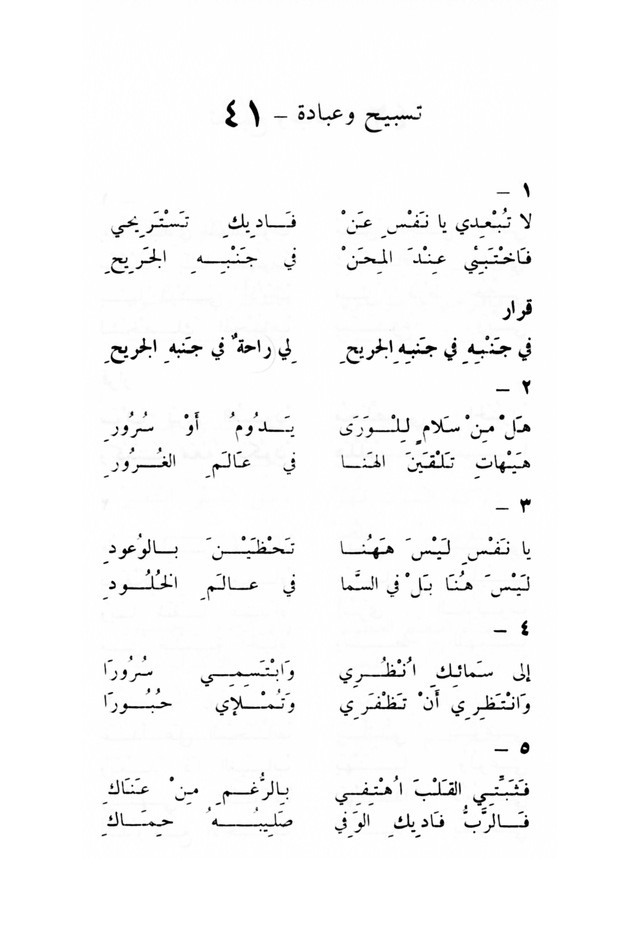 ٤١ - تسبيح وعبادة
١ -
لا تُبْعِدي يا نَفْسِ عَنْ فَـــادِيكِ تَسْتَرِيحي
فَاخْتَبَئِي عِنْدَ المِحَنْ في جَنْبِـــهِ الجَرِيحِ
قرار
في جَنْبِهِ في جَنبِهِ الجريحِ لِي راحةٌ في جَنبهِ الجريحِ
٢ -
هَلْ مِنْ سَلامٍ لِلْـــوَرَى يَـــدُومُ أَوْ سُرُورِ
هَيْهَاتِ تَلْقَيْنَ الهَنَـــا في عَالَمِ الغُـــرُورِ
٣ -
يا نَفْسِ لَيْسَ هَهُنَـــا تَحْظَيْـــنَ بـــالوُعودِ
لَيْسَ هُنَا بَلْ في السَّما في عَـــالَمِ الخُلُـــودِ
٤ -
إلى سَمَائِكِ اُنْظُـــرِي وَابْتَسِمِـــي سُرُورَا
وَانْتَظِرِي أَنْ تَظْفَرِي وَتُمْـــلإي حُبُـــورَا
٥ -
فَثَبِّتِـــي القَلْبَ اُهْتِفِـــي بِالرُّغمِ مِنْ عَنَاكِ
فَـــالرَّبُّ فَادِيكِ الوَفِي صَلِيبُـــهُ حِمَاكِ